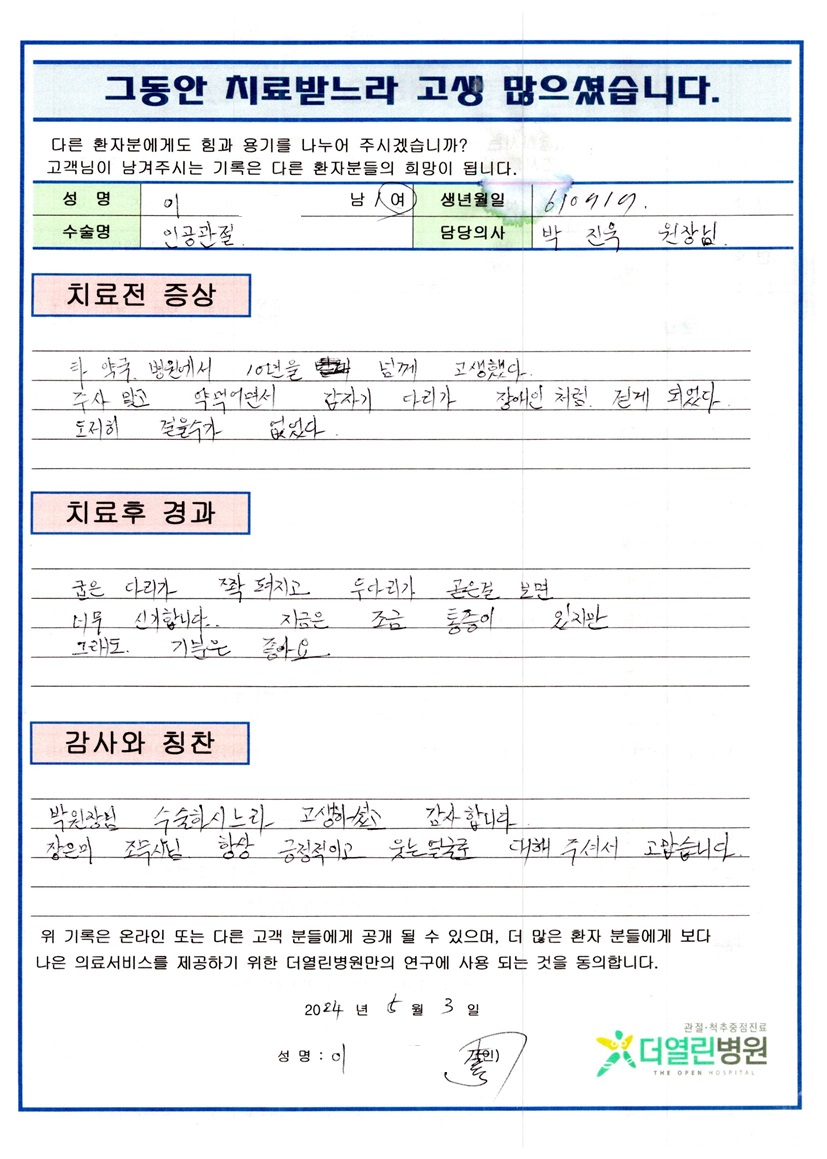 그동안 치료받느라 고생 많으셨습니다.
다른 환자분에게도 힘과 용기를 나누어 주시겠습니까?
고객님이 남겨주시는 기록은 다른 환자분들의 희망이 됩니다.
성 명 이 남 / 여 생년월일 610919.
수술명 인공관절. 담당의사 박 진욱 원장님.
치료전 증상
타 약국, 병원에서 10년을 넘께 고생했다.
주사 맞고 약먹어면서 갑자기 다리가 장애인 처럼. 걷게 되었다.
도저히 걸을수가 없었다.
치료후 경과
굽은 다리가 쫙 펴지고 두다리가 곧은걸 보면
너무 신기합니다.. 지금은 조금 통증이 있지만
그래도. 기분은 좋아요.
감사와 칭찬
박원장님 수술하시느라 고생하셨고 감사합니다.
장은미 조무사님. 항상 긍정적이고 웃는얼굴로 대해 주셔서 고맙습니다.
위 기록은 온라인 또는 다른 고객 분들에게 공개 될 수 있으며, 더 많은 환자 분들에게 보다
나은 의료서비스를 제공하기 위한 더열린병원만의 연구에 사용 되는 것을 동의합니다.
2024 년 5 월 3 일
성 명 : 이 (인)
관절·척추중점진료
더열린병원
THE OPEN HOSPITAL